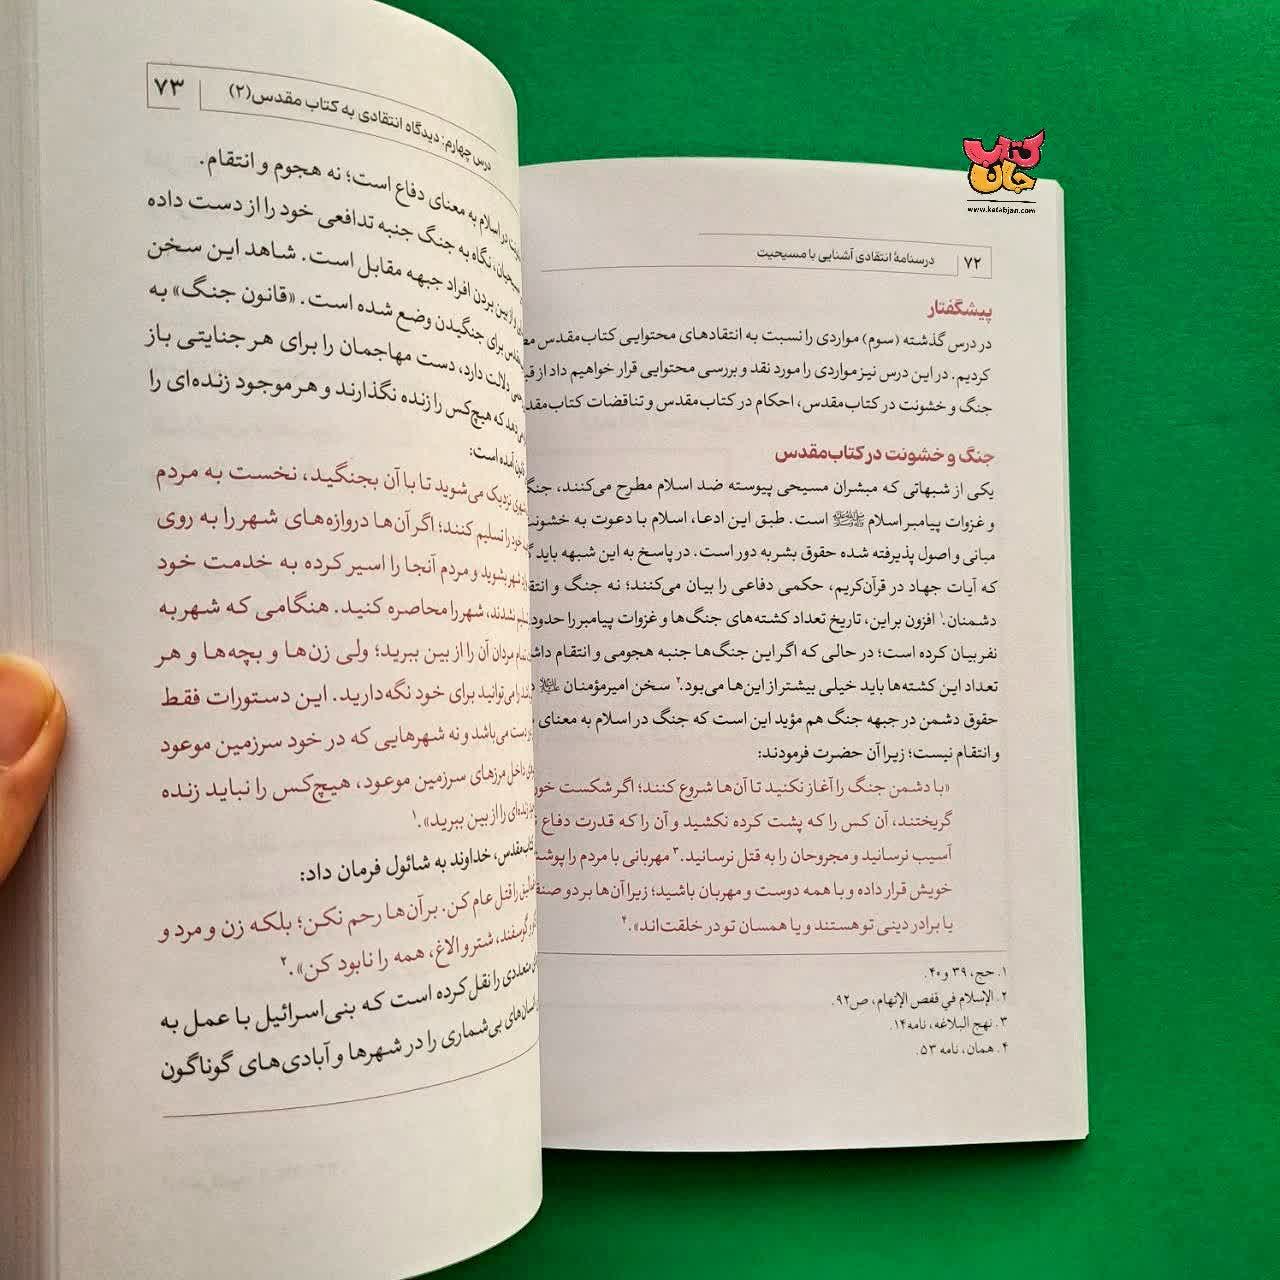 کتاب جان
www.ketabjan.com
۷۲
درسنامهٔ انتقادی آشنایی با مسیحیت
پیشگفتار
در درس گذشته (سوم) مواردی را نسبت به انتقادهای محتوایی کتاب‌مقدس
کردیم. در این درس نیز مواردی را مورد نقد و بررسی محتوایی قرار خواهیم داد از
جنگ و خشونت در کتاب‌مقدس، احکام در کتاب‌مقدس و تناقضات
جنگ و خشونت در کتاب‌مقدس
یکی از شبهاتی که مبشران مسیحی پیوسته ضد اسلام مطرح می‌کنند،
و غزوات پیامبر اسلام ﷺ است. طبق این ادعا، اسلام با دعوت به
مبانی و اصول پذیرفته شده حقوق بشر به دور است. در پاسخ به این شبهه باید
که آیات جهاد در قرآن‌کریم، حکمی دفاعی را بیان می‌کنند؛ نه جنگ و
دشمنان.۱ افزون بر این، تاریخ تعداد کشته‌های جنگ‌ها و غزوات پیامبر را
نفر بیان کرده است؛ در حالی که اگر این جنگ‌ها جنبه هجومی و انتقام
تعداد این کشته‌ها باید خیلی بیشتر از این‌ها می‌بود.۲ سخن امیرمؤمنان
حقوق دشمن در جبهه جنگ هم مؤید این است که جنگ در اسلام به معنای
و انتقام نیست؛ زیرا آن حضرت فرمودند:
«با دشمن جنگ را آغاز نکنید تا آن‌ها شروع کنند؛ اگر شکست
گریختند، آن کس را که پشت کرده نکشید و آن را که قدرت دفاع
آسیب نرسانید و مجروحان را به قتل نرسانید.۳ مهربانی با مردم را
خویش قرار داده و با همه دوست و مهربان باشید؛ زیرا آن‌ها بر دو
یا برادر دینی تو هستند و یا همسان تو در خلقت‌اند».۴
۱. حج، ۳۹ و ۴۰.
۲. الإسلام في قفص الإتهام، ص۹۲.
۳. نهج البلاغه، نامه۱۴.
۴. همان، نامه ۵۳.
درس چهارم: دیدگاه انتقادی به کتاب مقدس(۲)
۷۳
در اسلام به معنای دفاع است؛ نه هجوم و انتقام.
نگاه به جنگ جنبه تدافعی خود را از دست داده
از بین بردن افراد جبهه مقابل است. شاهد این سخن
برای جنگیدن وضع شده است. «قانون جنگ» به
دلالت دارد، دست مهاجمان را برای هر جنایتی باز
که هیچ‌کس را زنده نگذارند و هر موجود زنده‌ای را
آمده است:
نزدیک می‌شوید تا با آن بجنگید، نخست به مردم
خود را تسلیم کنند؛ اگر آن‌ها دروازه‌های شهر را به روی
شهر بشوید و مردم آنجا را اسیر کرده به خدمت خود
نشدند، شهر را محاصره کنید. هنگامی که شهر به
مردان آن را از بین ببرید؛ ولی زن‌ها و بچه‌ها و هر
را می‌توانید برای خود نگه دارید. این دستورات فقط
دست می‌باشد و نه شهرهایی که در خود سرزمین موعود
داخل مرزهای سرزمین موعود، هیچ‌کس را نباید زنده
زنده‌ای را از بین ببرید».۱
کتاب‌مقدس، خداوند به شائول فرمان داد:
را قتل عام کن. بر آن‌ها رحم نکن؛ بلکه زن و مرد و
گوسفند، شتر و الاغ، همه را نابود کن».۲
متعددی را نقل کرده است که بنی‌اسرائیل با عمل به
انسان‌های بی‌شماری را در شهرها و آبادی‌های گوناگون